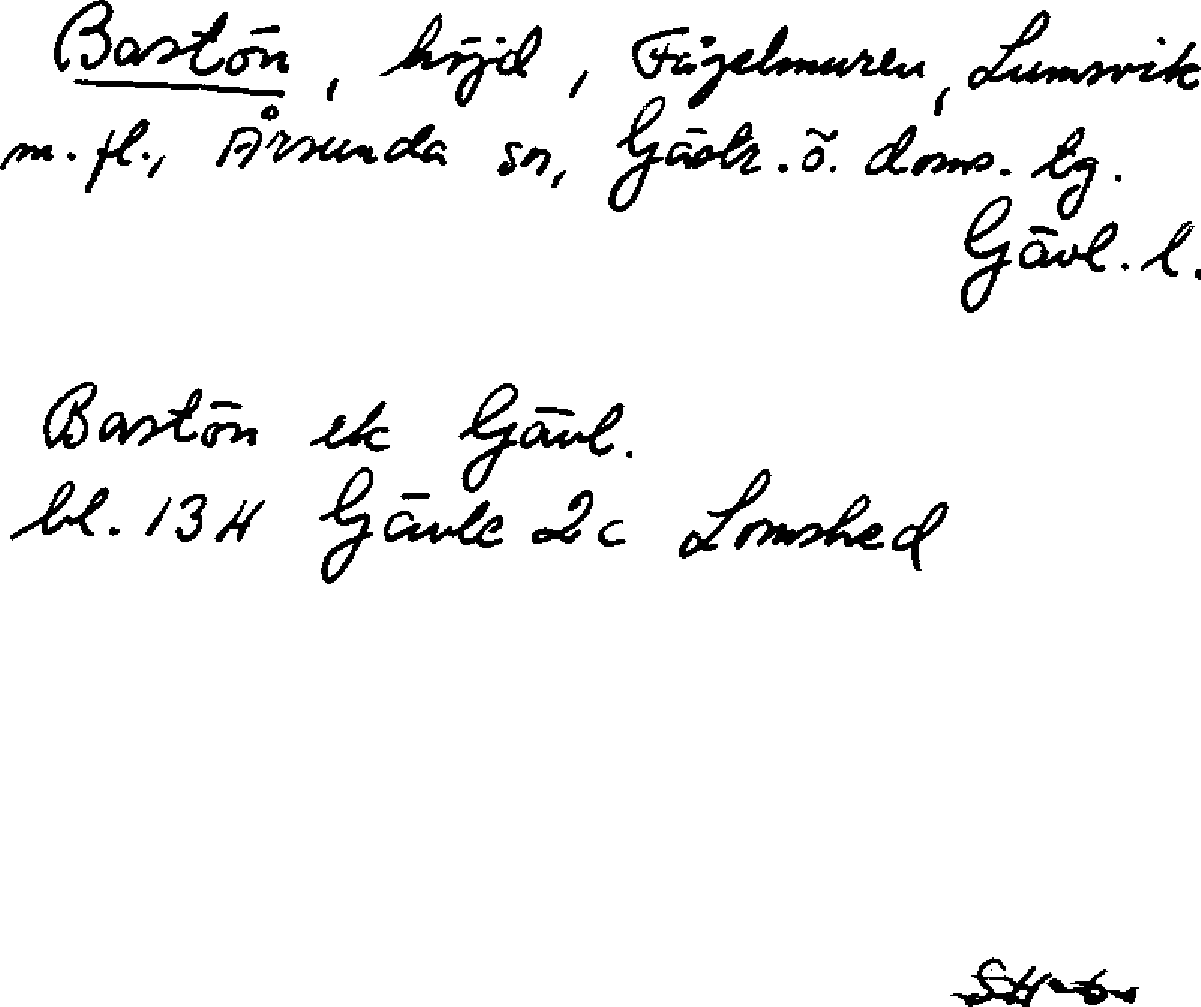 Bastön, höjd, Fågelmuren, Lumsvik
m. fl., Årsunda sn, Gästr. ö. doms. tg.
Gävl. l.
Bastön ek Gävl.
bl. 13H Gävle 2c Lomshed